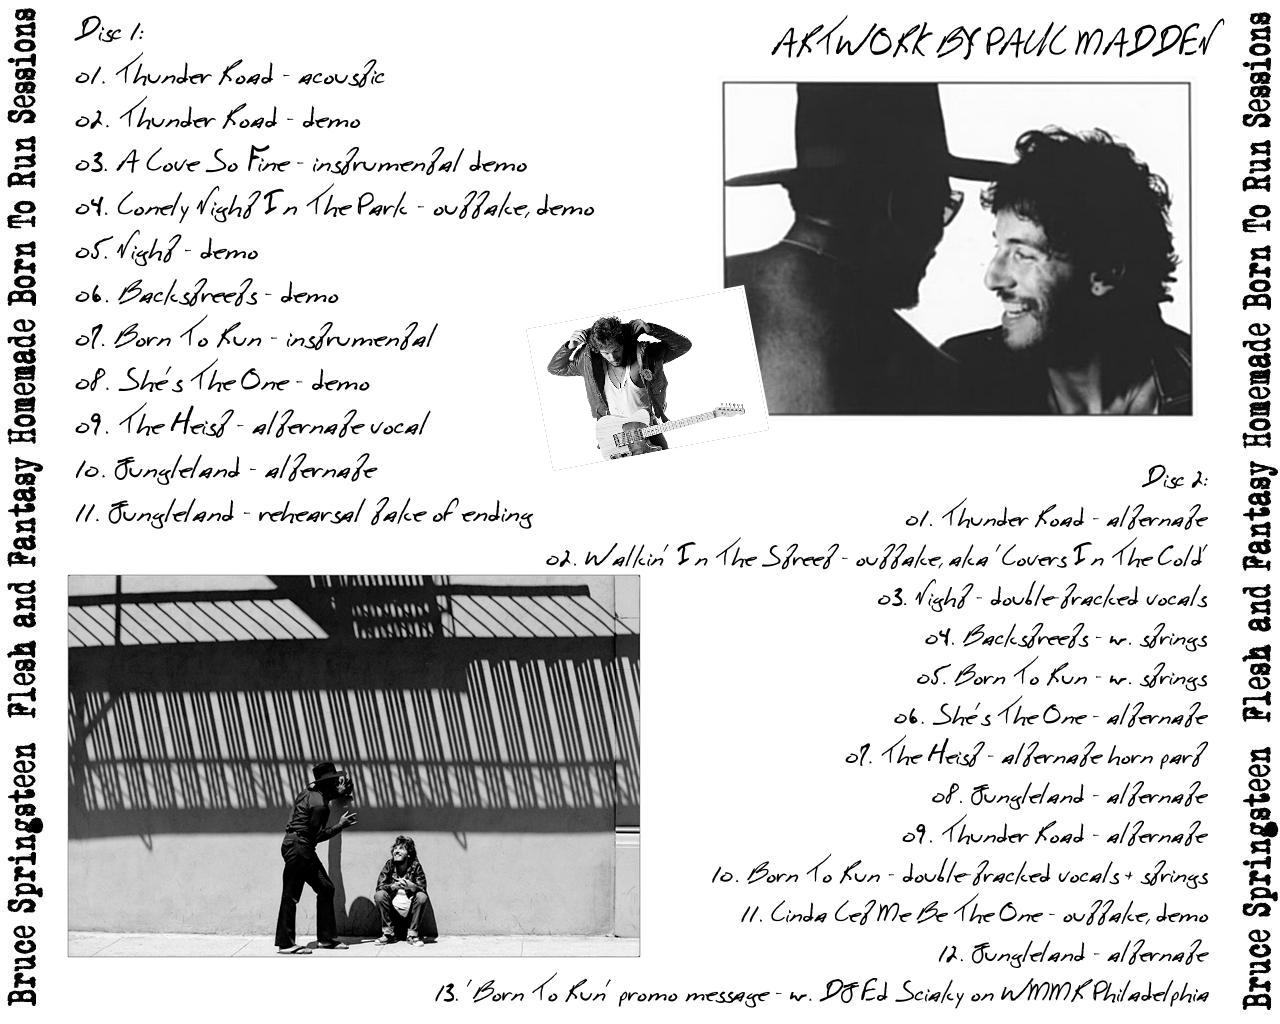 Disc 1:
01. Thunder Road - acoustic
02. Thunder Road - demo
03. A Love So Fine - instrumental demo
04. Lonely Night In The Park - outtake, demo
05. Night - demo
06. Backstreets - demo
07. Born To Run - instrumental
08. She's The One - demo
09. The Heist - alternate vocal
10. Jungleland - alternate
11. Jungleland - rehearsal take of ending
ARTWORK BY PAUL MADDEN
Disc 2:
01. Thunder Road - alternate
02. Walkin' In The Street - outtake, aka 'Lovers In The Cold'
03. Night - double-tracked vocals
04. Backstreets - w. strings
05. Born To Run - w. strings
06. She's The One - alternate
07. The Heist - alternate horn part
08. Jungleland - alternate
09. Thunder Road - alternate
10. Born To Run - double-tracked vocals + strings
11. Linda Let Me Be The One - outtake, demo
12. Jungleland - alternate
13. 'Born To Run' promo message - w. DJ Ed Sciaky on WMMR Philadelphia
Bruce Springsteen Flesh and Fantasy Homemade Born To Run Sessions
Bruce Springsteen Flesh and Fantasy Homemade Born To Run Sessions